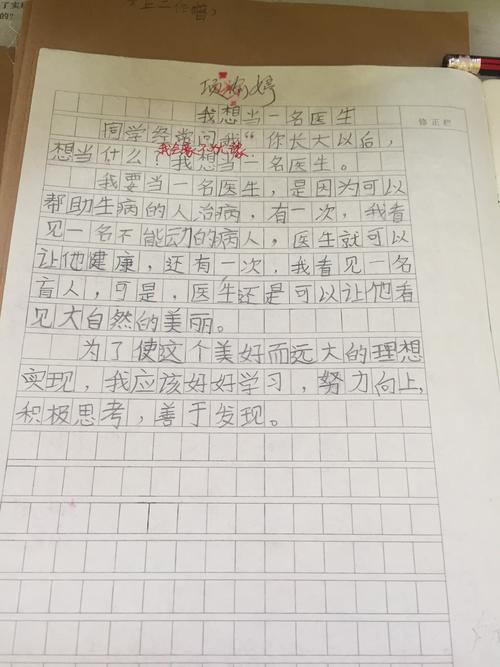 我想当一名医生
同学经常问我“你长大以后，
想当什么？我想当一名医生。
我要当一名医生，是因为可以
帮助生病的人治病，有一次，我看
见一名不能动的病人，医生就可以
让他健康，还有一次，我看见一名
盲人，可是，医生还是可以让他看
见大自然的美丽。
为了使这个美好而远大的理想
实现，我应该好好学习，努力向上，
积极思考，善于发现。
修正栏